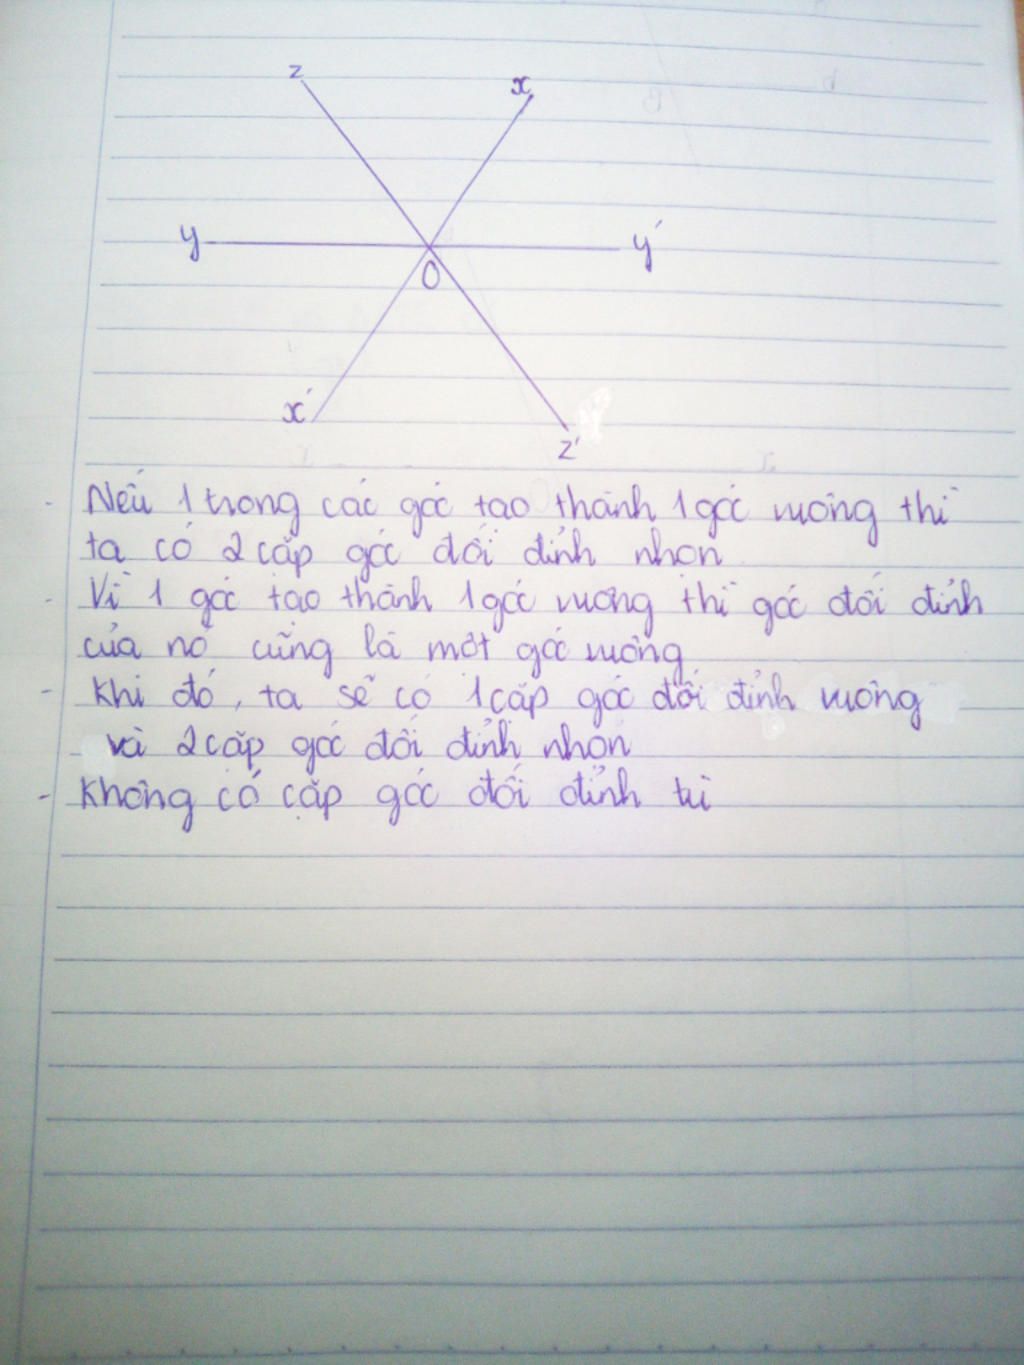 z x
y y'
O
x' z'
- Nếu 1 trong các góc tạo thành 1 góc vuông thì
ta có 2 cặp góc đối đỉnh nhọn
- Vì 1 góc tạo thành 1 góc vuông thì góc đối đỉnh
của nó cũng là một góc vuông
- Khi đó, ta sẽ có 1 cặp góc đối đỉnh vuông
và 2 cặp góc đối đỉnh nhọn
- Không có cặp góc đối đỉnh tù